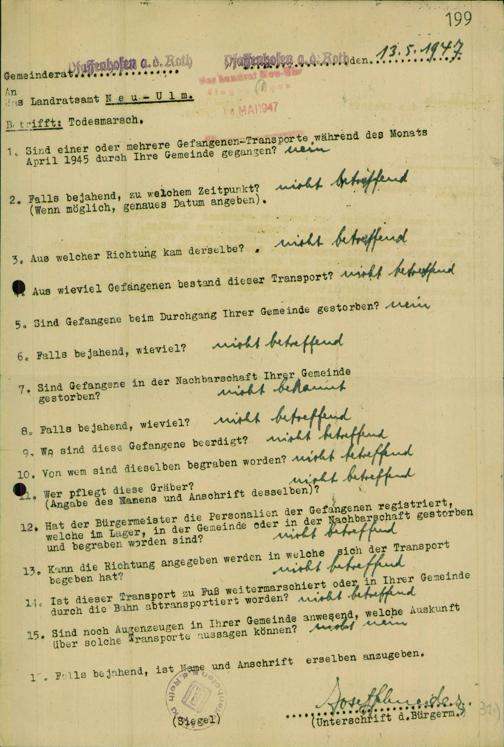 199
Gemeinderat Pfaffenhofen a.d. Roth Pfaffenhofen a.d. Roth den 13.5.1947
An
das Landratsamt Neu-Ulm.
MAI 1947
Betrifft: Todesmarsch.
1. Sind einer oder mehrere Gefangenen-Transporte während des Monats
April 1945 durch Ihre Gemeinde gegangen? nein
2. Falls bejahend, zu welchem Zeitpunkt? nicht betreffend
(Wenn möglich, genaues Datum angeben).
3. Aus welcher Richtung kam derselbe? nicht betreffend
Aus wieviel Gefangenen bestand dieser Transport? nicht betreffend
5. Sind Gefangene beim Durchgang Ihrer Gemeinde gestorben? nein
6. Falls bejahend, wieviel? nicht betreffend
7. Sind Gefangene in der Nachbarschaft Ihrer Gemeinde
gestorben? nicht bekannt
8. Falls bejahend, wieviel? nicht betreffend
9. Wo sind diese Gefangene beerdigt? nicht betreffend
10. Von wem sind dieselben begraben worden? nicht betreffend
11. Wer pflegt diese Gräber? nicht betreffend
(Angabe des Namens und Anschrift desselben)?
12. Hat der Bürgermeister die Personalien der Gefangenen registriert,
welche im Lager, in der Gemeinde oder in der Nachbarschaft gestorben
und begraben worden sind? nicht betreffend
13. Kann die Richtung angegeben werden in welche sich der Transport
begeben hat? nicht betreffend
14. Ist dieser Transport zu Fuß weitermarschiert oder in Ihrer Gemeinde
durch die Bahn abtransportiert worden? nicht betreffend
15. Sind noch Augenzeugen in Ihrer Gemeinde anwesend, welche Auskunft
über solche Transporte aussagen können? nein
1 . Falls bejahend, ist Name und Anschrift erselben anzugeben.
(Siegel)
(Unterschrift d.Bürgerm.)